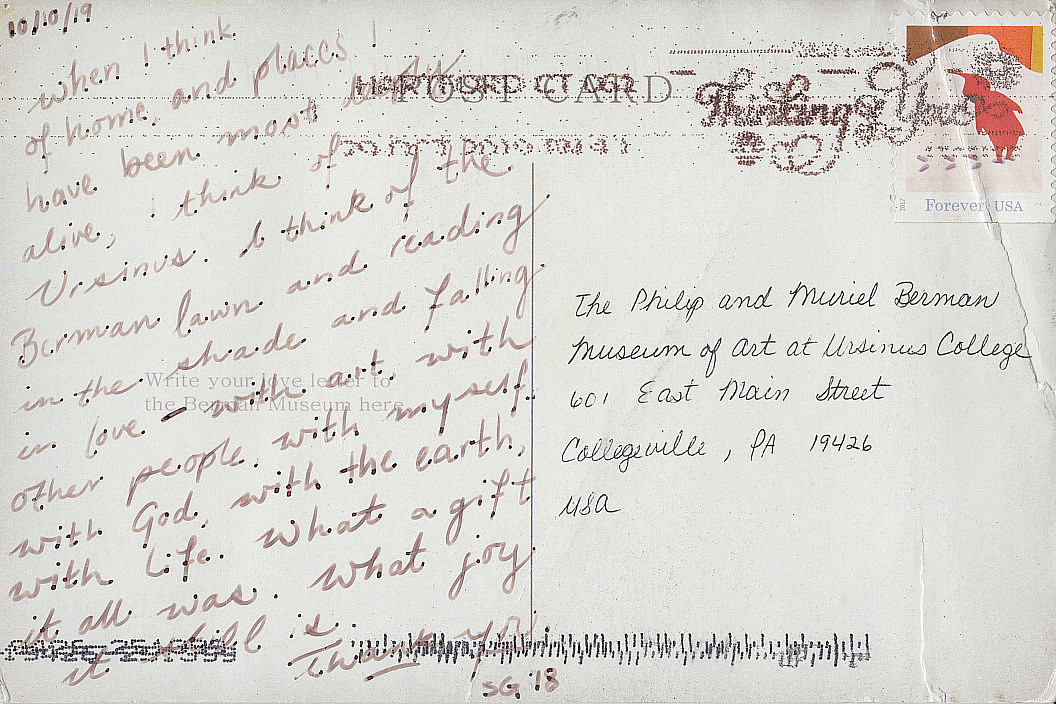 10/10/19
when I think
of home, and places I
have been most deeply
alive, I think of
Ursinus. I think of the
Berman lawn and reading
in the shade and falling
in love - with art, with
other people, with myself.
with God, with the earth,
with life. What a gift
it all was. What joy
it still is.
Thank you.
SG '18
Write your love letter to
the Berman Museum here
POST CARD
HARTFORD CT 061
Thinking of You
Forever USA
2017
The Philip and Muriel Berman
Museum of Art at Ursinus College
601 East Main Street
Collegeville, PA 19426
USA